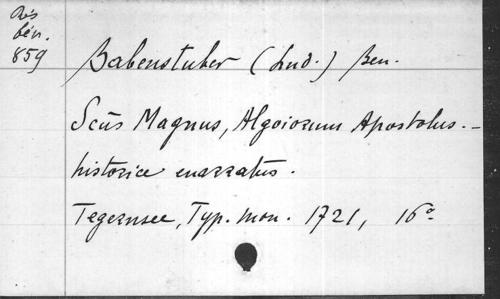 Rés
bén.
859
Babenstuber (Lud.) Ben.
Scūs Magnus, Algoiorum Apostolus.-
historice enarratus.
Tegernsee, Typ. mon. 1721, 16º